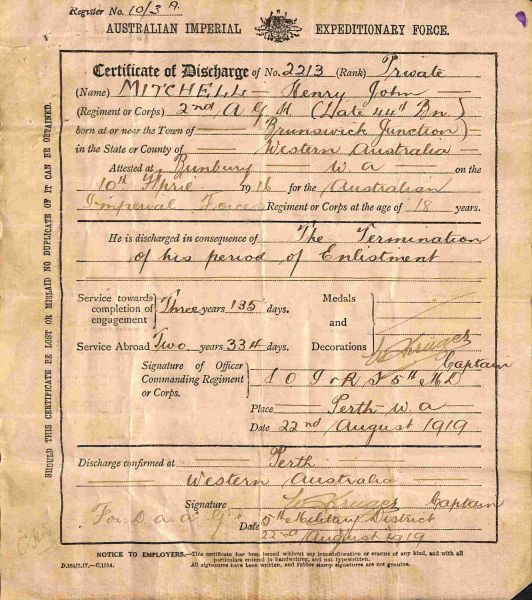 Register No. 10/3 A.
AUSTRALIAN IMPERIAL EXPEDITIONARY FORCE.
Certificate of Discharge of No. 2213 (Rank) Private
(Name) MITCHELL — Henry John —
(Regiment or Corps) 2nd A G H (Late 44th Bn)
born at or near the Town of Brunswick Junction
in the State or County of Western Australia
Attested at Bunbury W.a on the
10th April 1916 for the Australian
Imperial Forces Regiment or Corps at the age of 18 years.
He is discharged in consequence of The Termination
of his period of Enlistment
Service towards completion of engagement } Three years 135 days.
Service Abroad Two years 334 days.
Medals and Decorations
Kruger Captain
Signature of Officer Commanding Regiment or Corps.
S O I & R S 5th M D
Place Perth W.a
Date 22nd August 1919
Discharge confirmed at Perth
Western Australia
Signature Kruger Captain
For D.a.a.G. 5th Military District
Date 22nd August 1919
NOTICE TO EMPLOYERS.—This certificate has been issued without any interlineation or erasure of any kind, and with all
particulars entered in handwriting, and not typewritten.
All signatures have been written, and rubber stamp signatures are not genuine.
D.164/2.17.—C.1514.
SHOULD THIS CERTIFICATE BE LOST OR MISLAID NO DUPLICATE OF IT CAN BE OBTAINED.